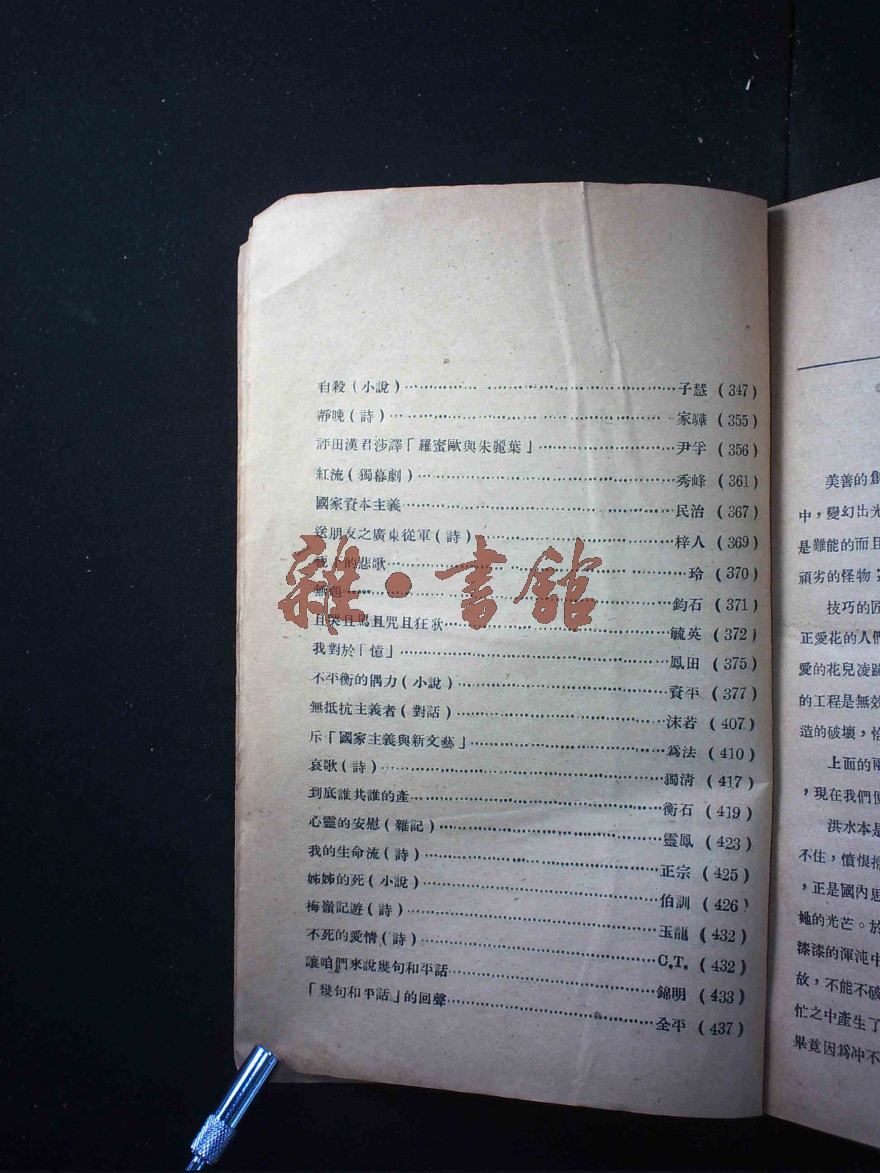 自殺(小說)………子慧(347)
靜晚(詩)………家驊(355)
評田漢君莎譯「羅蜜歐與朱麗葉」………尹孚(356)
紅流(獨幕劇)………秀峰(361)
國家資本主義………民治(367)
送朋友之廣東從軍(詩)………梓人(369)
的悲歌………玲(370)
………鈞石(371)
且哭且罵且咒且狂歌………毓英(372)
我對於「憶」………鳳田(375)
不平衡的偶力(小說)………資平(377)
無抵抗主義者(對話)………沫若(407)
斥「國家主義與新文藝」………爲法(410)
哀歌(詩)………獨清(417)
到底誰共誰的產………衡石(419)
心靈的安慰(雜記)………靈鳳(423)
我的生命流(詩)………正宗(425)
姊姊的死(小說)………伯訓(426)
梅嶺記遊(詩)………玉龍(432)
不死的愛情(詩)………C.T.(432)
讓咱們來說幾句和平話………錦明(433)
「幾句和平話」的回聲………全平(437)
雜·書館
美善的創
中,變幻出光
是難能的而且
頑劣的怪物;
技巧的匠
正愛花的人們
愛的花兒凌
的工程是無效
造的破壞,恰
上面的兩
,現在我們使
洪水本是
不住,憤恨
,正是國內思
她的光芒。於
漆漆的渾沌中
故,不能不破
忙之中產生了
畢竟因爲冲不